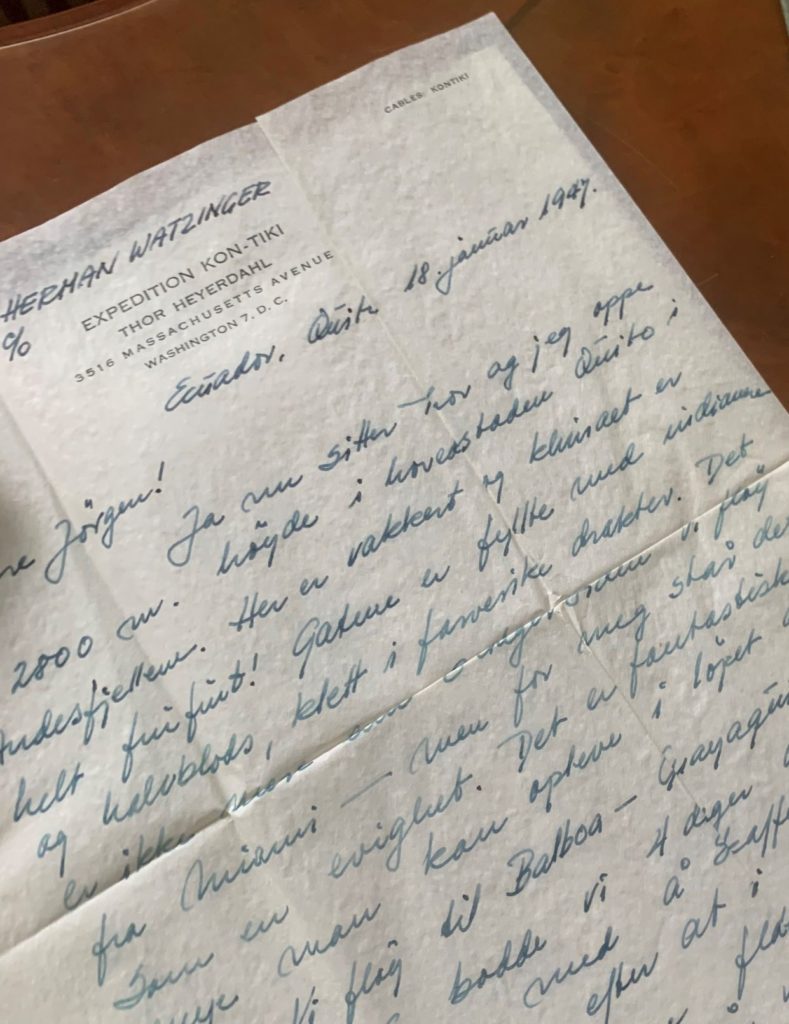 CABLES: KONTIKI
HERMAN WATZINGER
%
EXPEDITION KON-TIKI
THOR HEYERDAHL
3516 MASSACHUSETTS AVENUE
WASHINGTON 7. D. C.
Ecuador, Quito 18. januar 1947.
Jörgen!
Ja nu sitter Thor og jeg oppe
2800 m. höyde i hovedstaden Quito i
Andesfjellene. Her er vakkert og klimaet er
helt fint! Gatene er fyllte med indianere
og halvblods, kledt i farverike drakter. Det
er ikke mere enn siden vi flöy
fra Miami — men for meg står det
som en evighet. Det er fantastisk
mye man kan opleve i löpet
Vi flöy til Balboa — Guayaquil
bodde vi 4 dager
med å skaffe
efter at i